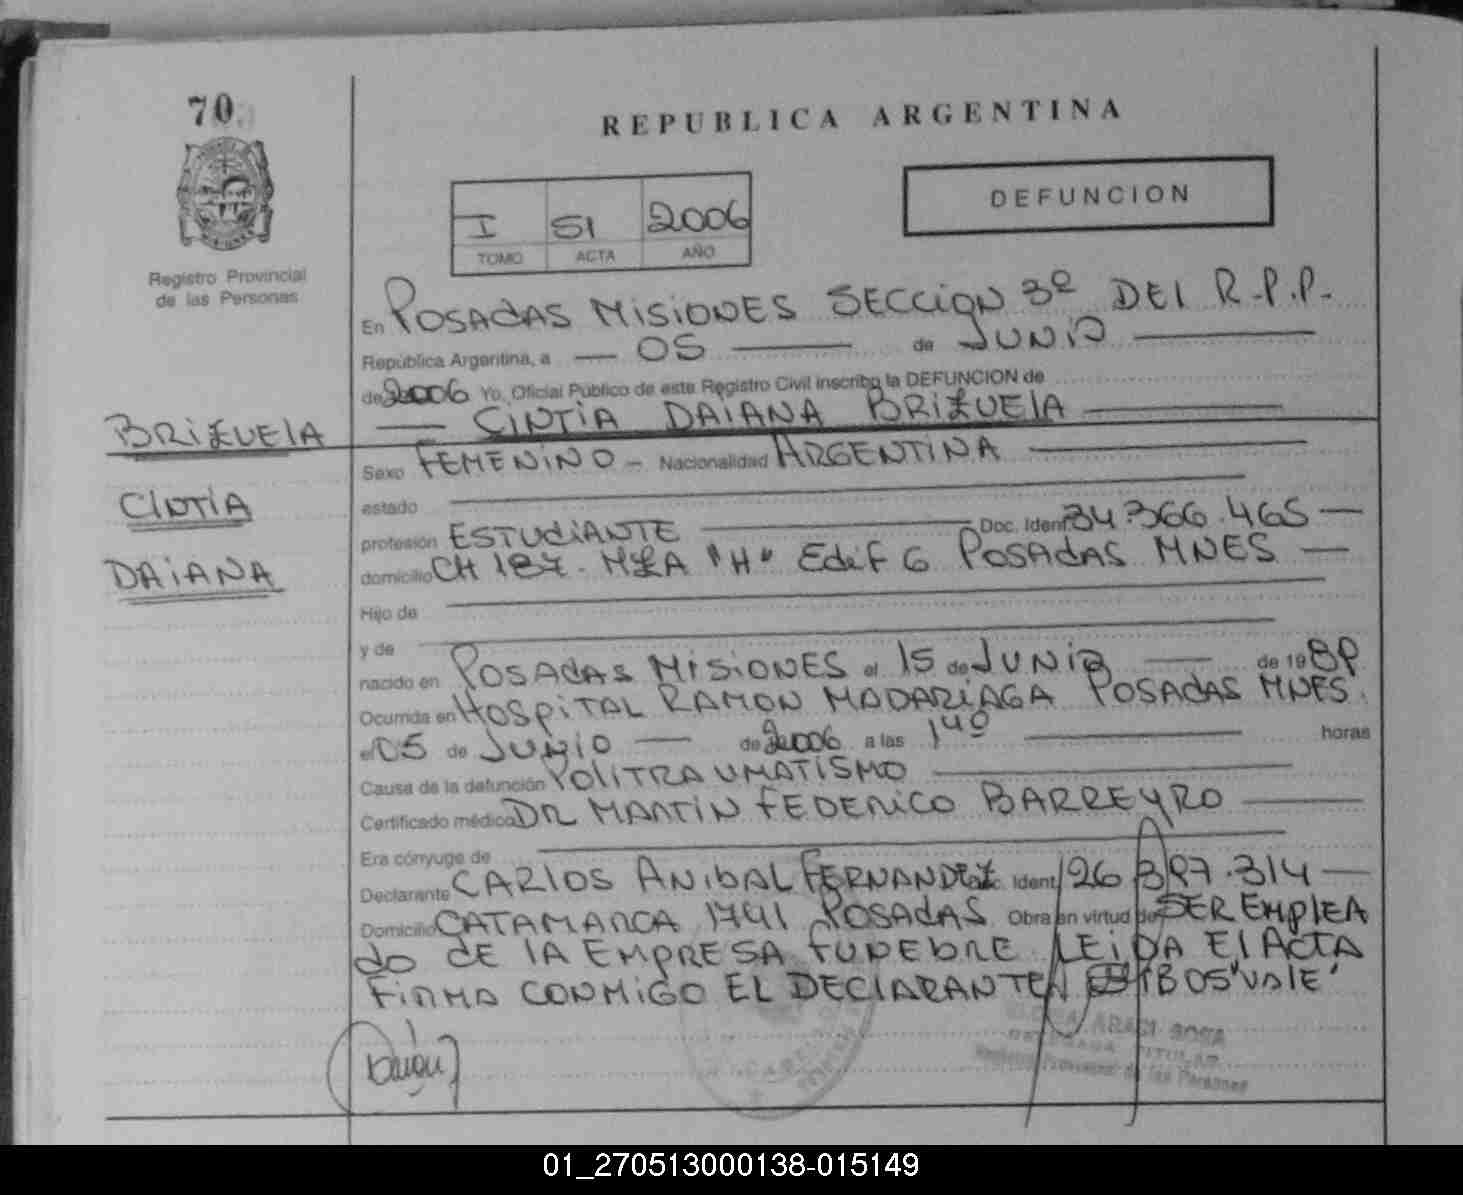 70
REPUBLICA ARGENTINA
DEFUNCION
I 51 2006
TOMO ACTA AÑO
Registro Provincial
de las Personas
En POSADAS MISIONES SECCION 3º DEL R.P.P.
República Argentina, a — 05 — de JUNIO —
de 2006 Yo, Oficial Público de este Registro Civil inscribo la DEFUNCION de
BRIZUELA — CINTIA DAIANA BRIZUELA —
Sexo FEMENINO — Nacionalidad ARGENTINA —
CINTIA
estado —
profesión ESTUDIANTE — Doc. Ident. 34.366.465 —
DAIANA
domicilio CH 187. MZA "H" Edif 6 POSADAS MNES —
Hijo de —
y de —
nacido en POSADAS MISIONES el 15 de JUNIO — de 1989
Ocurrida en HOSPITAL RAMON MADARIAGA POSADAS MNES.
el 05 de JUNIO — de 2006 a las 14º — horas
Causa de la defunción POLITRAUMATISMO —
Certificado médico DR MARTIN FEDERICO BARREYRO —
Era cónyuge de —
Declarante CARLOS ANIBAL FERNANDEZ Doc. Ident. 26.397.314 —
Domicilio CATAMARCA 1741 POSADAS Obra en virtud de SER EMPLEA
do DE LA EMPRESA FUNEBRE LEIDA El ACTA
FIRMA CONMIGO EL DECLARANTE "VALE"
ARACI SOSA
TITULAR
Registro Provincial de las Personas
01_270513000138-015149